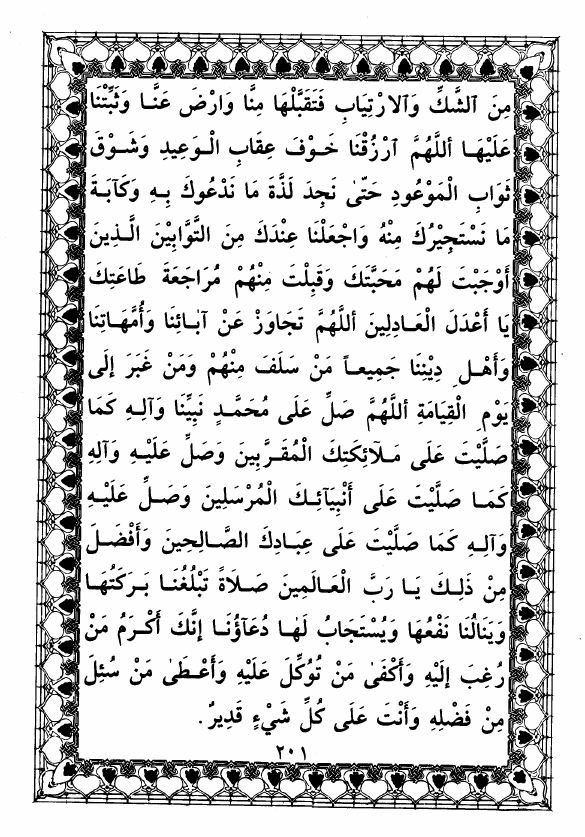 مِنَ ٱلشَّكِّ وَٱلارْتِيَابِ فَتَقَبَّلْهَا مِنَّا وَارْضَ عَنَّا وَثَبِّتْنَا
عَلَيْهَا أَللَّهُمَّ ٱرْزُقْنَا خَوْفَ عِقَابِ الْوَعِيدِ وَشَوْقَ
ثَوَابِ الْمَوْعُودِ حَتّىٰ نَجِدَ لَذَّةَ مَا نَدْعُوكَ بِهِ وَكَآبَةَ
مَا نَسْتَجِيْرُكَ مِنْهُ وَاجْعَلْنَا عِنْدَكَ مِنَ التَّوَّابِيْنَ الَّذِينَ
أَوْجَبْتَ لَهُمْ مَحَبَّتَكَ وَقَبِلْتَ مِنْهُمْ مُرَاجَعَةَ طَاعَتِكَ
يَا أَعْدَلَ الْعَادِلِينَ أَللَّهُمَّ تَجَاوَزْ عَنْ آبَائِنَا وَأُمَّهَاتِنَا
وَأَهْلِ دِيْنِنَا جَمِيعاً مَنْ سَلَفَ مِنْهُمْ وَمَنْ غَبَرَ إلَى
يَوْمِ الْقِيَامَةِ أَللَّهُمَّ صَلِّ عَلَى مُحَمَّدٍ نَبِيِّنَا وَآلِهِ كَمَا
صَلَّيْتَ عَلَى مَلَآئِكَتِكَ الْمُقَرَّبِينَ وَصَلِّ عَلَيْهِ وَآلِهِ
كَمَا صَلَّيْتَ عَلَى أَنْبِيَآئِكَ الْمُرْسَلِينَ وَصَلِّ عَلَيْهِ
وَآلِهِ كَمَا صَلَّيْتَ عَلَى عِبَادِكَ الصَّالِحِينَ وَأَفْضَلَ
مِنْ ذَلِكَ يَا رَبَّ الْعَالَمِينَ صَلَاةً تَبْلُغُنَا بَرَكَتُهَا
وَيَنَالُنَا نَفْعُهَا وَيُسْتَجَابُ لَهٰا دُعَآؤُنَا إنَّكَ أَكْرَمُ مَنْ
رُغِبَ إلَيْهِ وَأَكْفَىٰ مَنْ تُوُكِّلَ عَلَيْهِ وَأَعْطَىٰ مَنْ سُئِلَ
مِنْ فَضْلِهِ وَأَنْتَ عَلَى كُلِّ شَيْءٍ قَدِيرٌ.
٢٠١